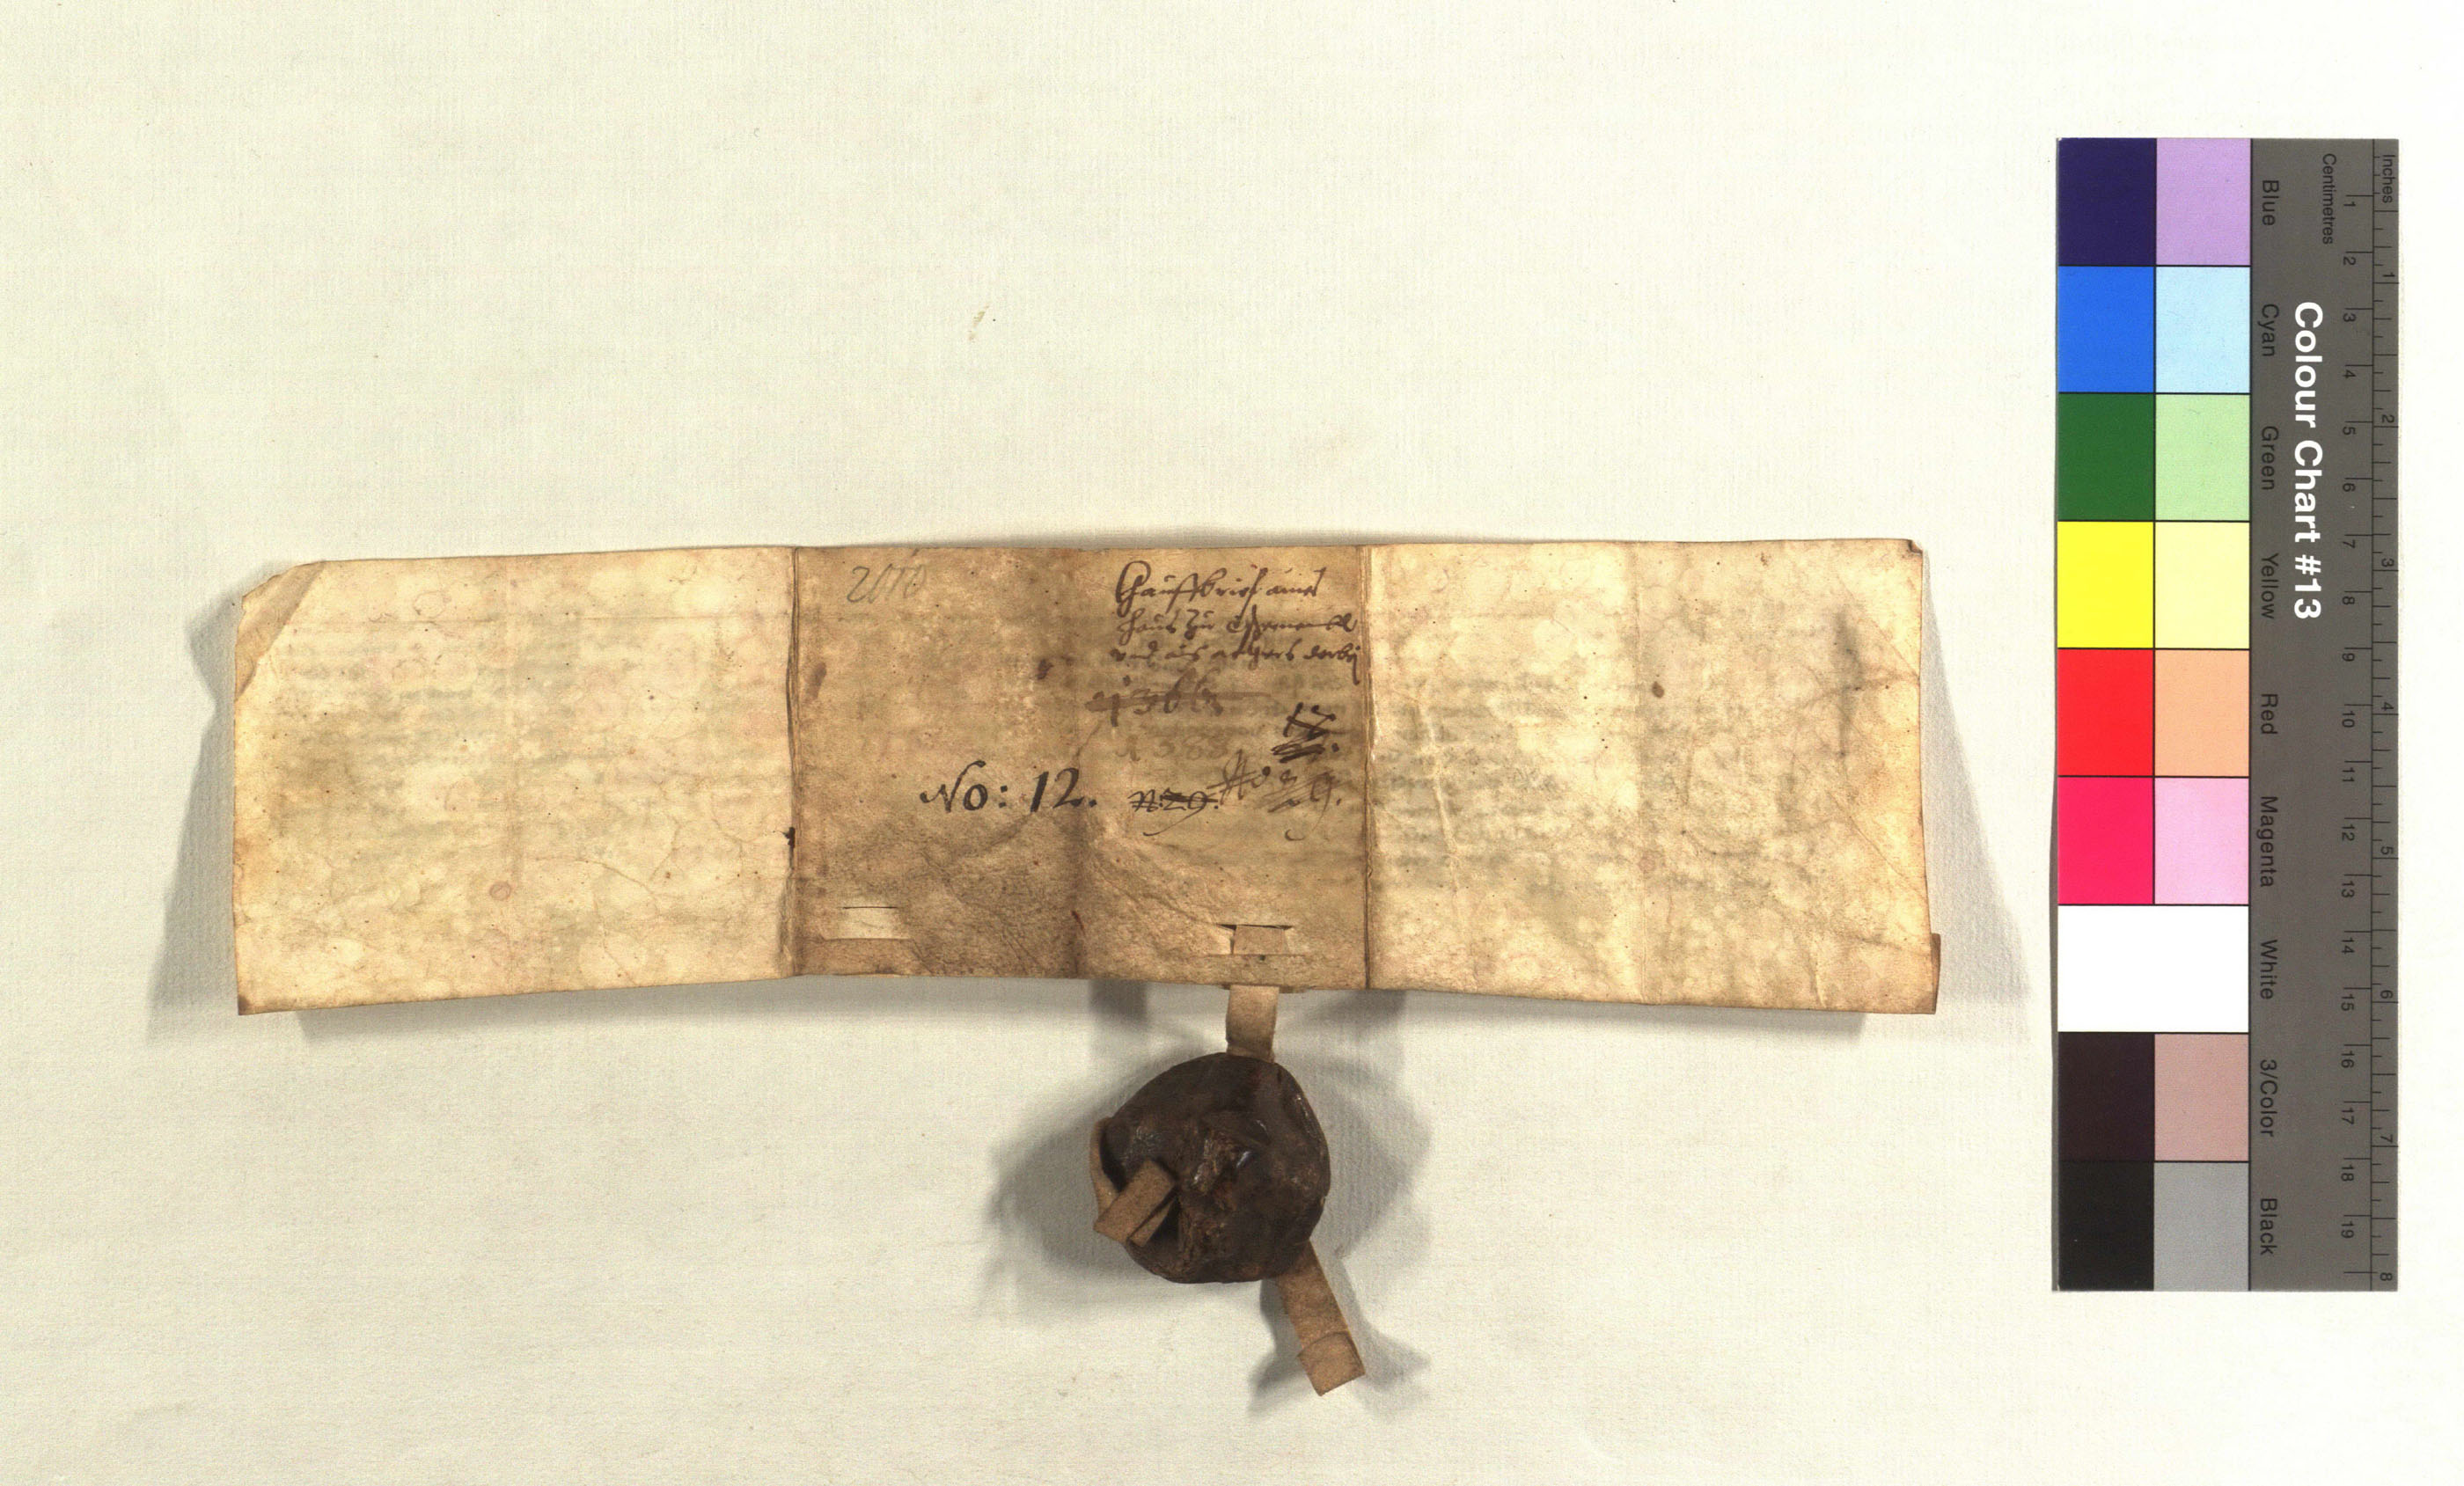 Chauffbrief aines
Haus zür
und ains akhers darbeÿ
1366
1388
17.
No: 12.
N: 29.
No 29.
Colour Chart #13
Blue
Cyan
Green
Yellow
Red
Magenta
White
3/Color
Black
Inches
1 2 3 4 5 6 7 8
Centimetres
1 2 3 4 5 6 7 8 9 10 11 12 13 14 15 16 17 18 19